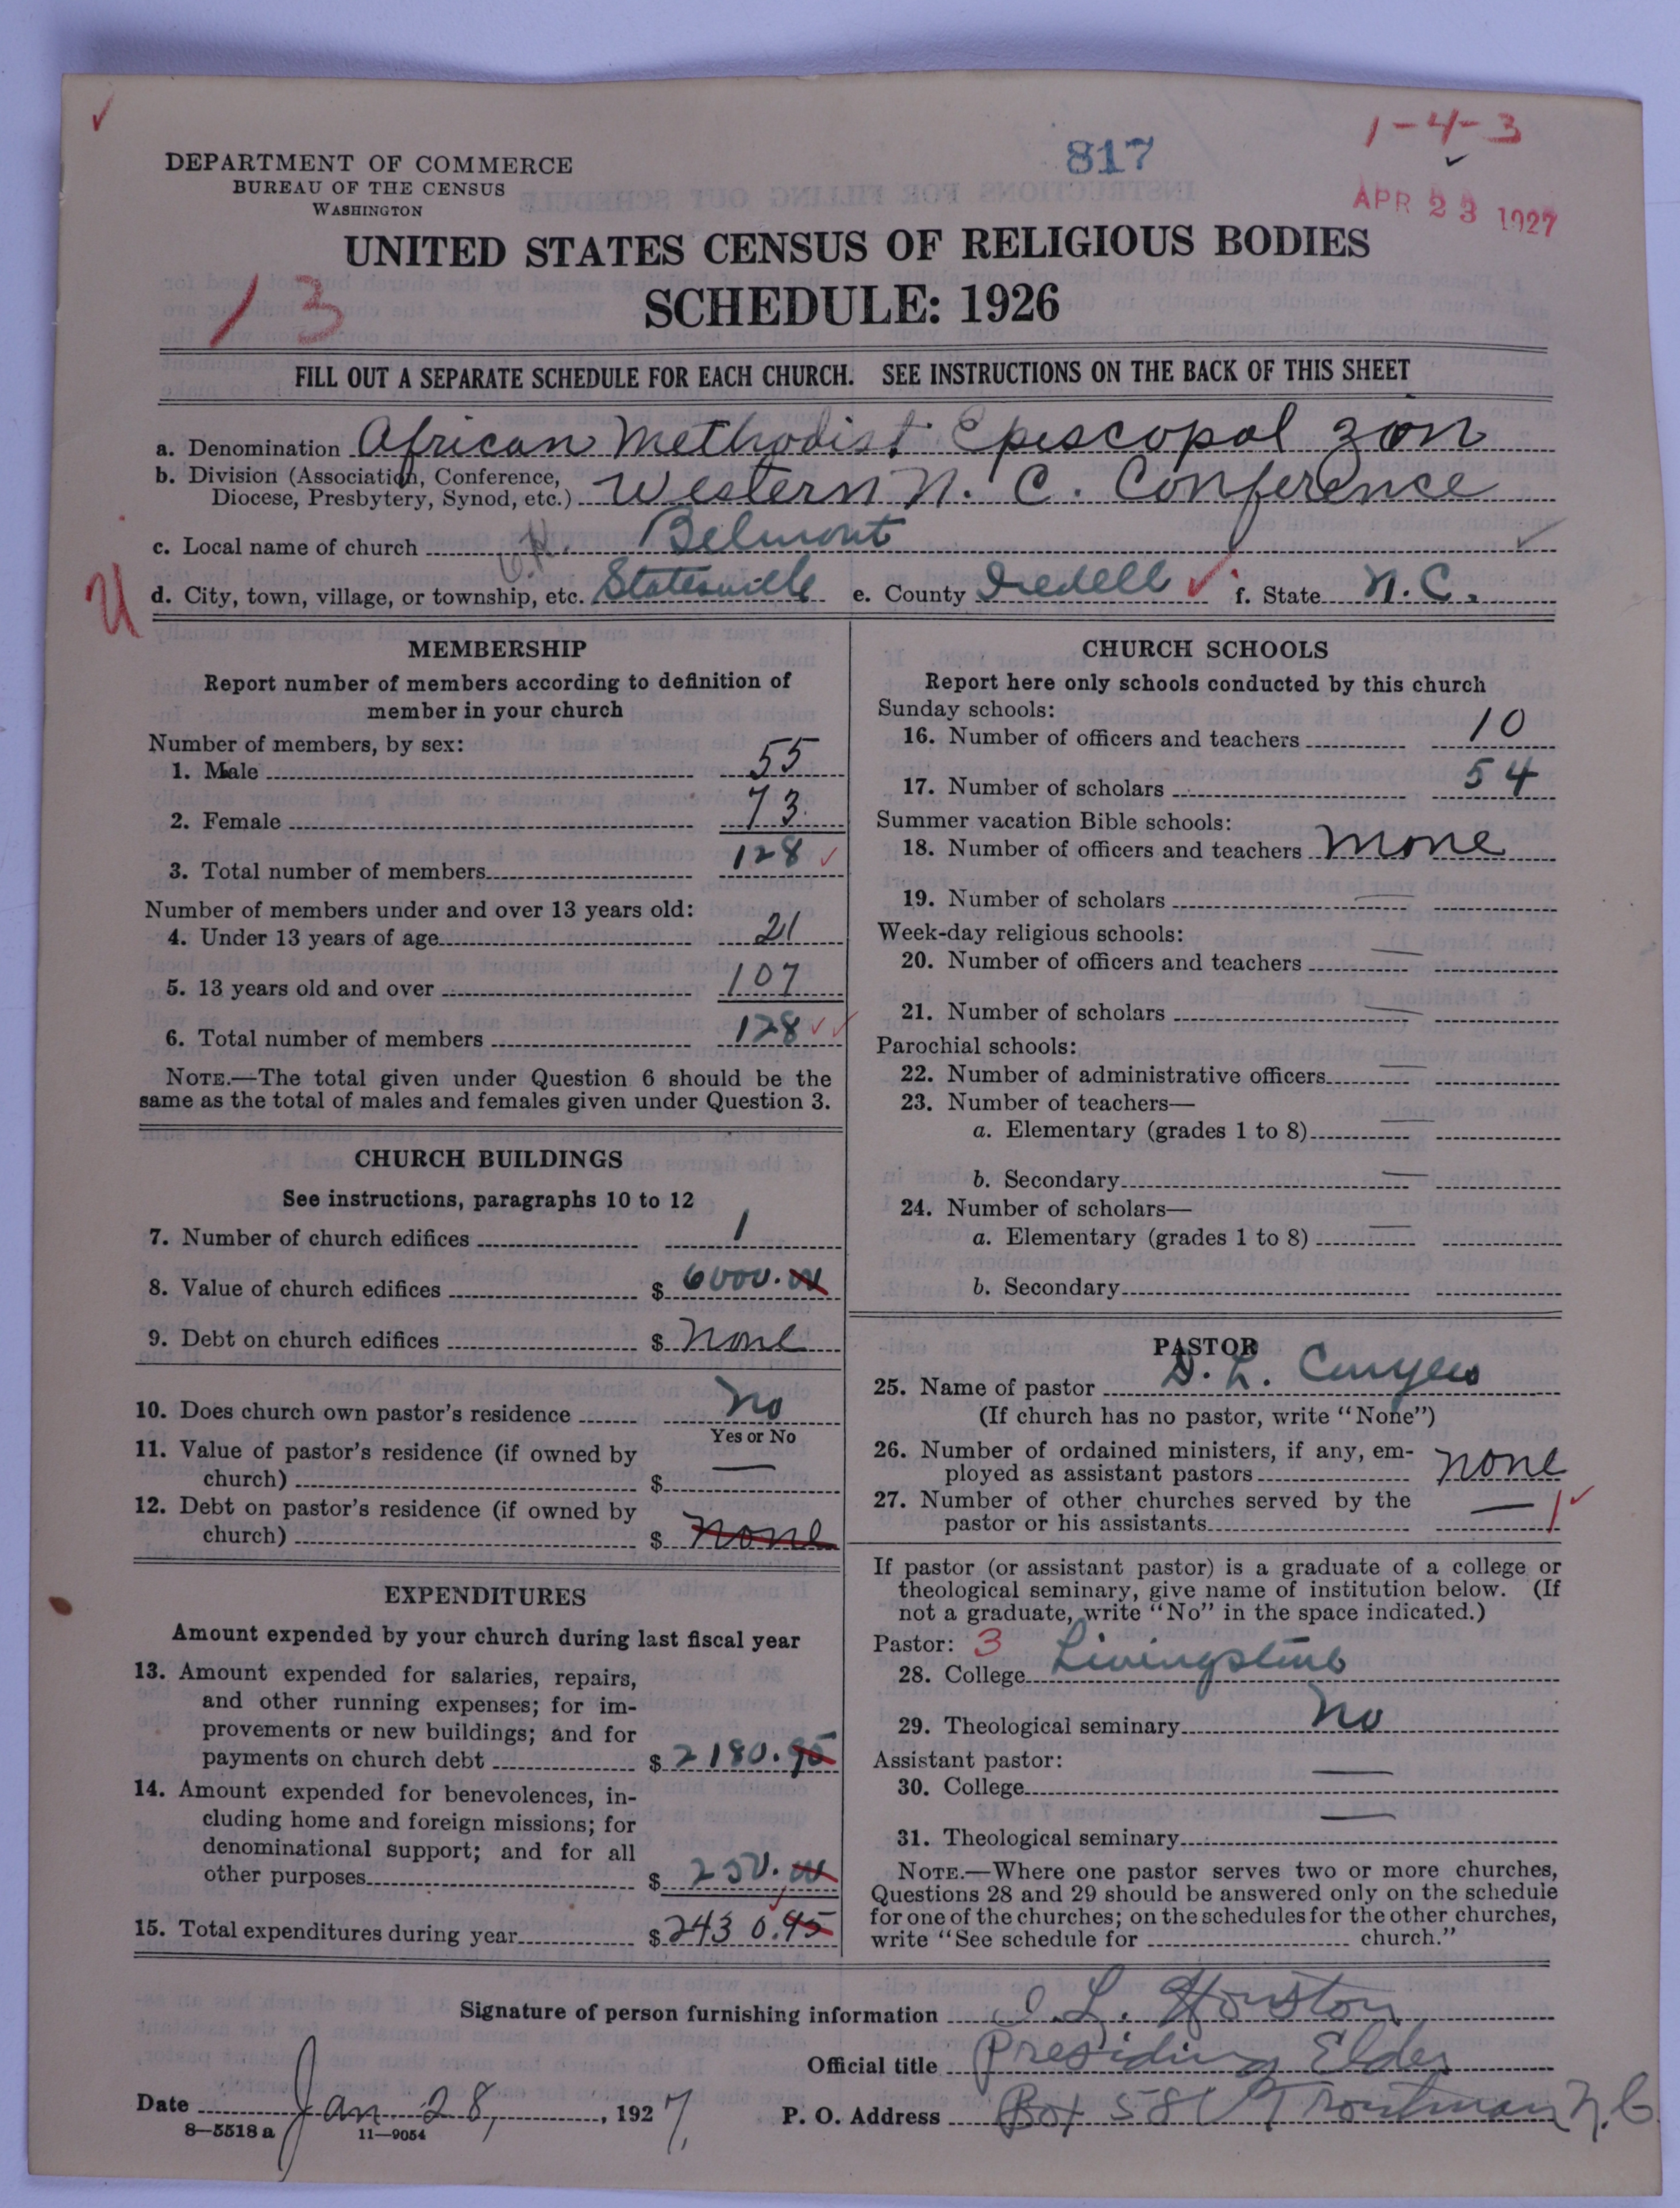 1-4-3
817
DEPARTMENT OF COMMERCE
BUREAU OF THE CENSUS
WASHINGTON
APR 23 1927
UNITED STATES CENSUS OF RELIGIOUS BODIES
13
SCHEDULE: 1926
FILL OUT A SEPARATE SCHEDULE FOR EACH CHURCH. SEE INSTRUCTIONS ON THE BACK OF THIS SHEET
a. Denomination African Methodist Episcopal Zion
b. Division (Association, Conference,
Diocese, Presbytery, Synod, etc.) Western N. C. Conference
c. Local name of church Belmont
U
d. City, town, village, or township, etc. Statesville e. County Iredell f. State N.C.
MEMBERSHIP
Report number of members according to definition of
member in your church
Number of members, by sex:
1. Male 55
2. Female 73
3. Total number of members 128
Number of members under and over 13 years old:
4. Under 13 years of age 21
5. 13 years old and over 107
6. Total number of members 128
NOTE.—The total given under Question 6 should be the
same as the total of males and females given under Question 3.
CHURCH BUILDINGS
See instructions, paragraphs 10 to 12
7. Number of church edifices 1
8. Value of church edifices $ 6000.00
9. Debt on church edifices $ none
10. Does church own pastor's residence No
Yes or No
11. Value of pastor's residence (if owned by
church) $ —
12. Debt on pastor's residence (if owned by
church) $ none
EXPENDITURES
Amount expended by your church during last fiscal year
13. Amount expended for salaries, repairs,
and other running expenses; for im-
provements or new buildings; and for
payments on church debt $ 2180.95
14. Amount expended for benevolences, in-
cluding home and foreign missions; for
denominational support; and for all
other purposes $ 250.00
15. Total expenditures during year $ 2430.95
CHURCH SCHOOLS
Report here only schools conducted by this church
Sunday schools:
16. Number of officers and teachers 10
17. Number of scholars 54
Summer vacation Bible schools:
18. Number of officers and teachers None
19. Number of scholars —
Week-day religious schools:
20. Number of officers and teachers —
21. Number of scholars —
Parochial schools:
22. Number of administrative officers —
23. Number of teachers—
a. Elementary (grades 1 to 8) —
b. Secondary —
24. Number of scholars—
a. Elementary (grades 1 to 8) —
b. Secondary
PASTOR
25. Name of pastor S. L.
(If church has no pastor, write "None")
26. Number of ordained ministers, if any, em-
ployed as assistant pastors none
27. Number of other churches served by the
pastor or his assistants — 1
If pastor (or assistant pastor) is a graduate of a college or
theological seminary, give name of institution below. (If
not a graduate, write "No" in the space indicated.)
Pastor: 3
28. College Livingstone
29. Theological seminary No
Assistant pastor:
30. College —
31. Theological seminary —
NOTE.—Where one pastor serves two or more churches,
Questions 28 and 29 should be answered only on the schedule
for one of the churches; on the schedules for the other churches,
write "See schedule for church."
Signature of person furnishing information L. Houston
Official title Presiding Elder
Date Jan. 28, 1927, P. O. Address Box 581 Troutman N.C
8—5518 a 11—9054